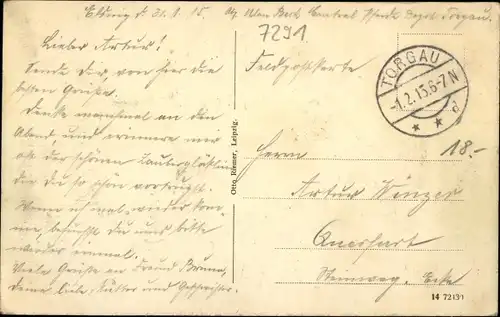 Elsnig d. 31.1.15.
7291
Lieber Artur!
Sende Dir, von hier die
besten Grüße.
Denke manchmal an den
Abend, und erinnere mich
der schönen
die Du so schön vortrugst.
Wenn ich mal wieder kom-
me, besuchst Du uns bitte
wieder einmal.
Viele Grüße an Freund
Deine liebe Mutter und Geschwister.
Otto Römer, Leipzig.
Feldpostkarte
TORGAU
-1.2.15.6-7N
* * d
18.-
Herrn
Artur Winzer
Querfurt
Steinweg. Ecke
14 72139